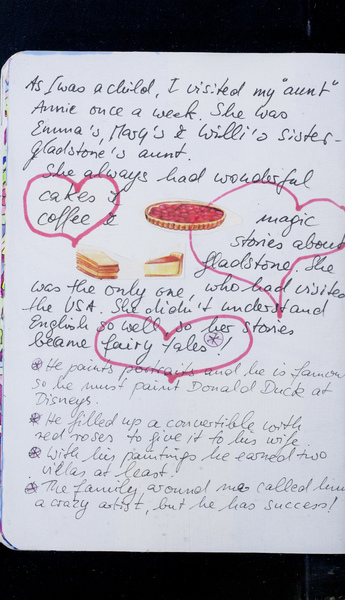 As I was a child, I visited my "aunt"
Annie once a week. She was
Emma's, Mary's & Willi's sister-
gladstone's aunt.
She always had wonderful
cakes &
coffee & magic
stories about
gladstone. She
was the only one, who had visited
the USA. She didn't understand
English so well, so her stories
became fairy tales !
He paints portraits and he is famous
so he must paint Donald Duck at
Disneys.
He filled up a convertible with
red roses to give it to his wife.
With his paintings he earned two
villas at least.
The family around me called him
a crazy artist, but he has success!